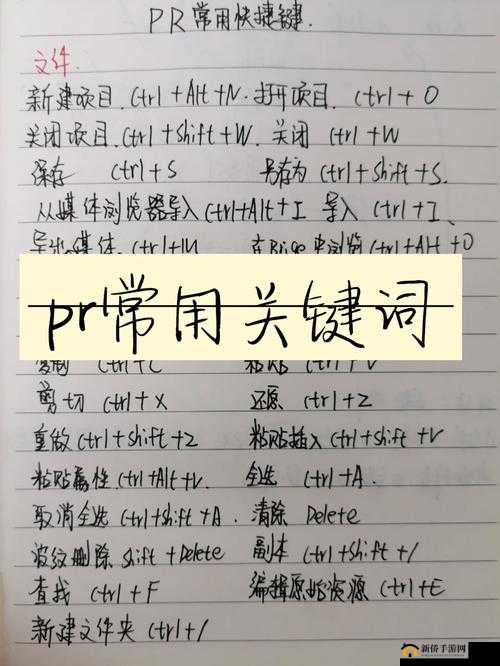 PR常用快捷键.
文件.
新建项目.ctrl+Alt+N.打开项目.ctrl+O
关闭项目.ctrl+shift+W.关闭 ctrl+W
保存 ctrl+S 另存为 ctrl+shift+S.
从媒体浏览器导入 ctrl+Alt+I 导入 ctrl+I、
导出媒体.ctrl+M 在Bridge中浏览 ctrl+Alt+O
pr常用关键词
复制 ctrl+C 粘贴 ctrl+V
剪切 ctrl+X 还原 ctrl+Z
重做 ctrl+shift+Z 粘贴插入 ctrl+shift+V
粘贴属性 ctrl+Alt+V. 全选 ctrl+A.
取消全选 ctrl+shift+A. 清除 Delete
波纹删除 shift+Delete 副本 ctrl+shift+/
查找 ctrl+F 编辑原始资源 ctrl+E
新建文件夹 ctrl+/
新侨手游网